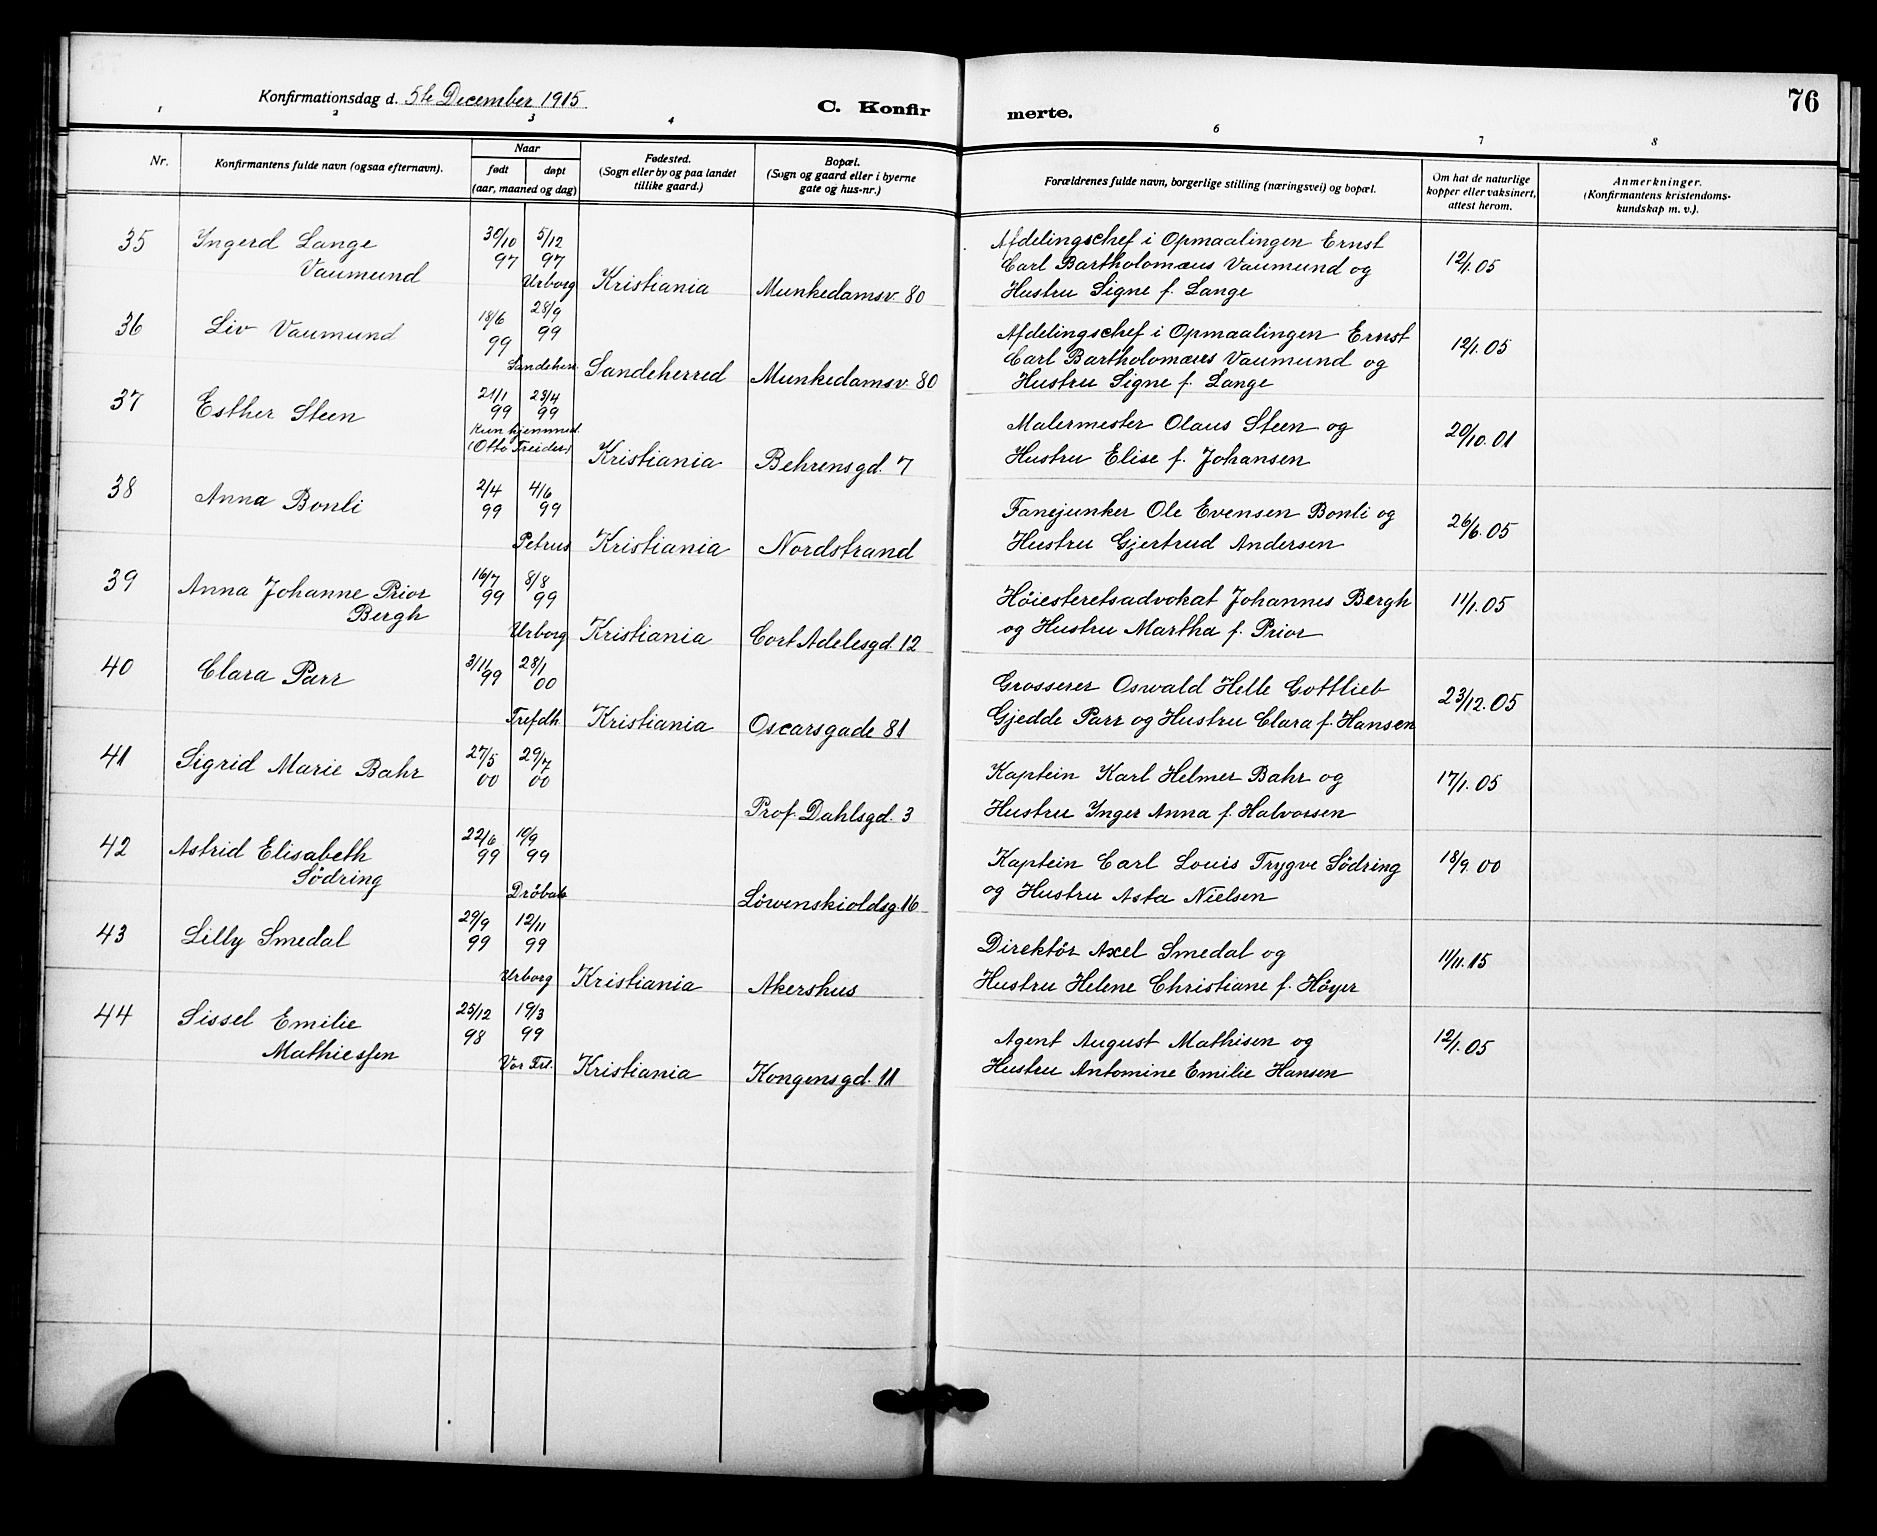 76
Konfirmationsdag d. 5te December 1915
C. Konfirmerte.
1 2 3 4 6 7 8
Nr.
Konfirmantens fulde navn (ogsaa efternavn).
Naar
født døpt
(aar, maaned og dag)
Fødested.
(Sogn eller by og paa landet
tillike gaard.)
Bopæl.
(Sogn og gaard eller i byerne
gate og hus-nr.)
Forældrenes fulde navn, borgerlige stilling (næringsvei) og bopæl.
Om hat de naturlige
kopper eller vaksinert,
attest herom.
Anmerkninger.
(Konfirmantens kristendoms-
kundskap m. v.).
35 Yngerd Lange 30/10 5/12 Afdelingschef i Opmaalingen Ernst
Vaumund 97 97 Carl Bartholomæus Vaumund og 12/1.05
Urborg Kristiania Munkedamsv. 80 Hustru Signe f. Lange
36 Liv Vaumund 18/6 28/9 Afdelingschef i Opmaalingen Ernst
99 99 Carl Bartholomæus Vaumund og 12/1.05
Sandeherr. Sandeherred Munkedamsv. 80 Hustru Signe f. Lange
37 Esther Steen 21/1 23/4 Malermester Olaus Steen og
99 99 20/10.01
Kun hjemmed.
(Otto Treider) Kristiania Behrensgd. 7 Hustru Elise f. Johansen
38 Anna Bonli 2/4 4/6 Fanejunker Ole Evensen Bonli og
99 99 26/6.05
Petrus Kristiania Nordstrand Hustru Gjertrud Andersen
39 Anna Johanne Prior 16/7 8/8 Høiesteretsadvokat Johannes Bergh
Bergh 99 99 11/1.05
Urborg Kristiania Cort Adelesgd. 12 og Hustru Martha f. Prior
40 Clara Parr 3/11 28/1 Grosserer Oswald Helle Gottlieb
99 00 23/12.05
Trefdh Kristiania Oscarsgade 81 Gjedde Parr og Hustru Clara f. Hansen
41 Sigrid Marie Bahr 27/5 29/7 Kaptein Karl Helmer Bahr og
00 00 17/1.05
Prof. Dahlsgd. 3 Hustru Ynger Anna f. Halvorsen
42 Astrid Elisabeth 22/6 10/9 Kaptein Carl Louis Trygve Södring
Södring 99 99 18/9.00
Dröbak Löwenskioldsg. 16 og Hustru Asta Nielsen
43 Lilly Smedal 29/9 12/11 Direktör Axel Smedal og
99 99 11/11.15
Urborg Kristiania Akershus Hustru Helene Christiane f. Höyer
44 Sissel Emilie 25/12 19/3 Agent August Mathisen og
Mathiessen 98 99 12/1.05
Vor Frl. Kristiania Kongensgd. 11 Hustru Antomine Emilie Hansen